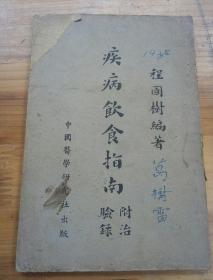 1935
程国樹編著
疾病飲食指南
附治驗錄
中國醫學研究社出版